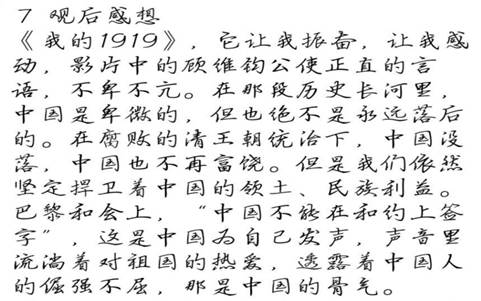 7 观后感想
《我的1919》，它让我振奋，让我感
动，影片中的顾维钧公使正直的言
语，不卑不亢。在那段历史长河里，
中国是卑微的，但也绝不是永远落后
的。在腐败的清王朝统治下，中国没
落，中国也不再富饶。但是我们依然
坚定捍卫着中国的领土、民族利益。
巴黎和会上，“中国不能在和约上签
字”，这是中国为自己发声，声音里
流淌着对祖国的热爱，透露着中国人
的倔强不屈，那是中国的骨气。